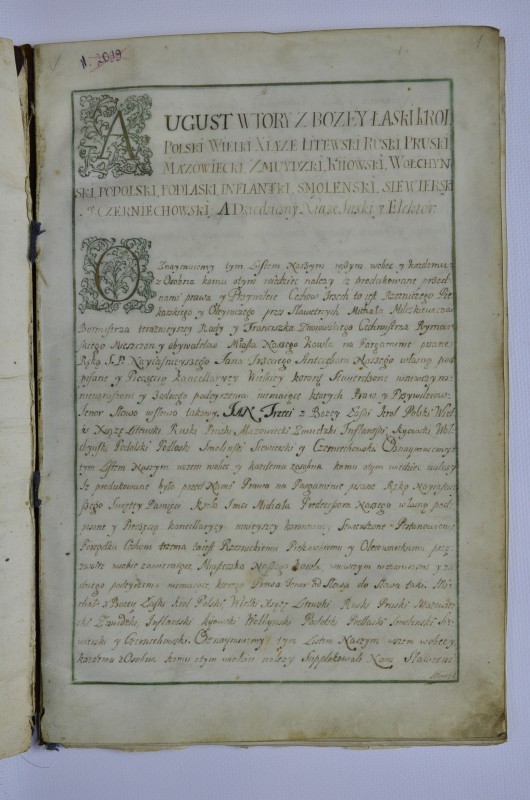 N. 2019
AUGUST WTORY Z BOZEY ŁASKI KROL
POLSKI WIELKI XIĄZE LITEWSKI RUSKI PRUSKI
MAZOWIECKI ZMUYDZKI, KIIOWSKI, WOŁCHYN
SKI, PODOLSKI, PODLASKI, INFLANTKI, SMOLENSKI, SIEWIERSKI
Y CZERNIECHOWSKI, A Dziedziczny Xiąze Saski y Elektor
Oznaymuiemy tym Listem Naszym wszem wobec y kazdemu
z Osobna komu o tym wiedziec nalezy iz produkowane przed
nami prawa y Przywileie Cechow Trzech to iest Rzeznickiego Pie
karskiego y Oleyniczego przez Sławetnych Michała
Burmistrza teraznieyszey Rady y Franciszka Cechmistrza
skiego Mieszczan y obywatelow Miasta Naszego Kowla na Pargaminie pisane
Ręką S.P. Nayiasnieyszego Jana Trzeciego Antecessora Naszego własną pod
pisane y Pieczęcią Kancellaryey Wielkiey Koronney Stwierdzone wniwczym
nienaruszone y zadnego podeyrzenia niemaiące ktorych Praw y Przywileiow
Tenor Słowo w słowo takowy. JAN Trzeci z Bozey Łaski Krol Polski Wiel
ki Xiąze Litewski Ruski Pruski Mazowiecki Zmudzki Inflantski, Kijowski Wol
chyński Podolski Podlaski Smolenski Siewierski y Czerniechowski Oznaymuiemy
tym Listem Naszym wszem wobec y kazdemu zosobna komu o tym wiedziec nalezy
Iz produkowane było przed Nami Prawa na Pargaminie pisane Ręką Nayiasniey
szego Swiętey Pamięci Krola Imci Michała Predecessora Naszego własną pod
pisane y Pieczęcią kancellaryey mnieyszey koronney, Stwierdzone
Porządku Cechom trzema to iest Rzeznickiemu Piekarskiemu y Oleiernickiemu
w sobie zawieraiące, Miasteczka Naszego Kowla, wniwczym nienaruszone y za
dnego podeyrzenia niemaiące, ktorego Prawa Tenor od Słowa do Słowa taki. Mi
chał z Bozey Łaski krol Polski Wielki Xsiąze Litewski Ruski Pruski Mazowiec
ki Zmudzki, Inflantski Kijowski Wołhyński Podolski Podlaski Smolenski Sie
wierski y Czerniechowski. Oznaymuiemy tym Listem Naszym wszem wobec y
kazdemu z Osobna komu o tym wiedziec nalezy Supplikowali Nam Sławetni